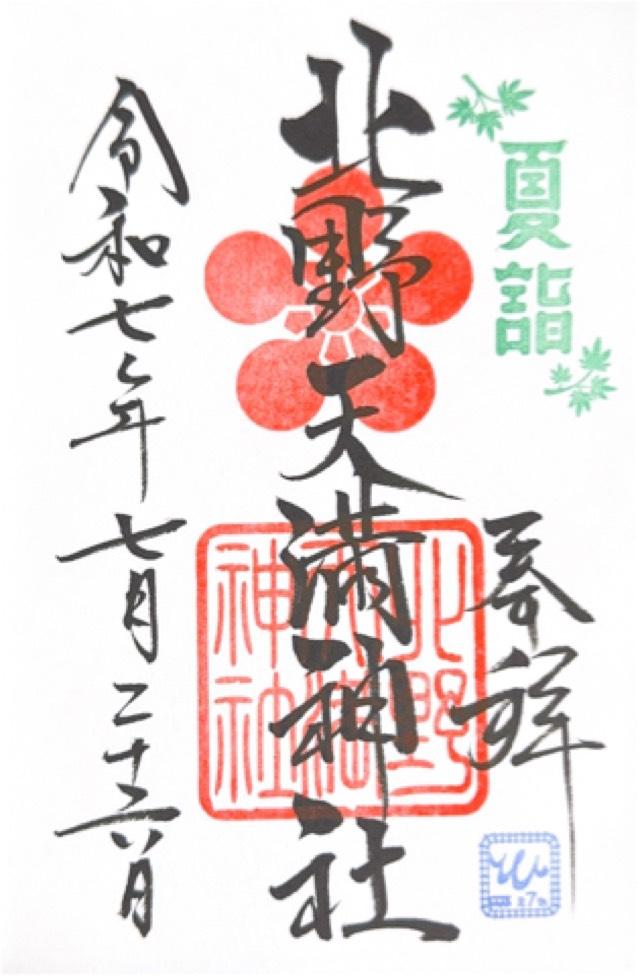 夏詣
奉拝
北野天満神社
北野
天満
神社
令和七年七月二十六日